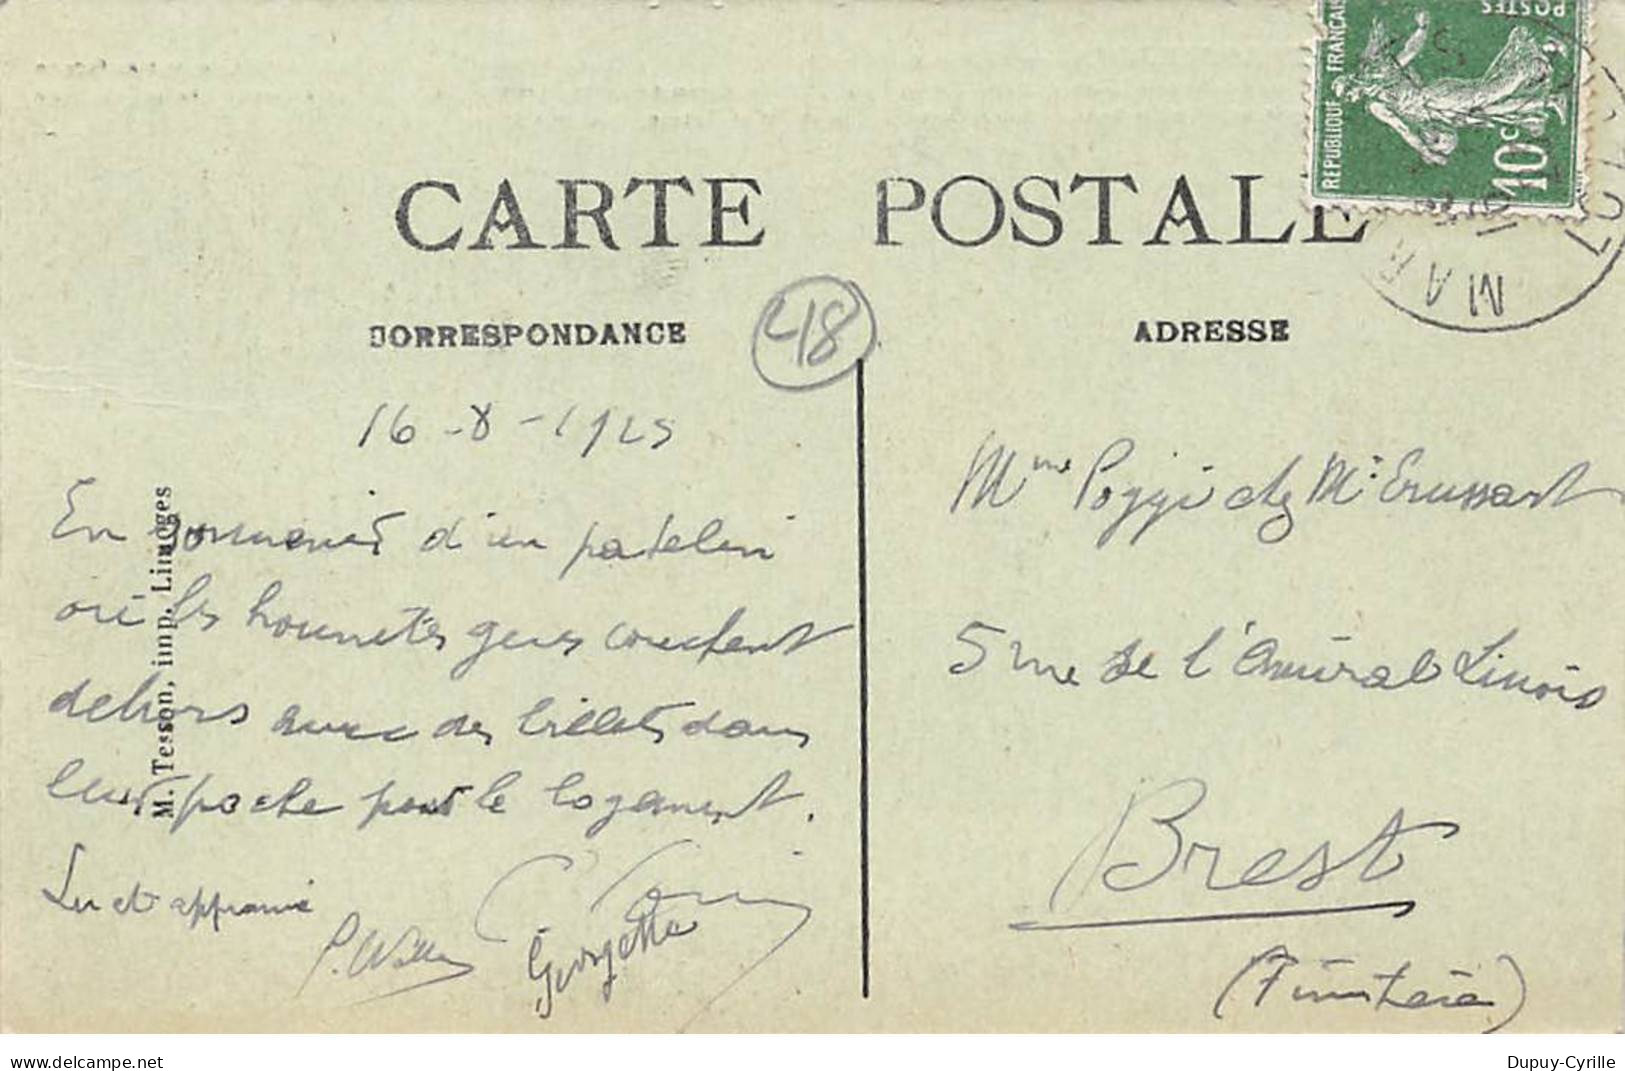 CARTE POSTALE
CORRESPONDANCE
ADRESSE
48
REPUBLIQUE FRANÇAISE
POSTES
10c
LOZ
MAR
16-8-1925
En souvenir d'un patelin
où les honnêtes gens couchent
dehors avec des billets dans
leur poche pour le logement.
Lu et approuvé
Georgette
M. Tesson, imp. Limoges
Mme Poggi chez Mr Erussart
5 rue de l'Amiral Linois
Brest
(Finistère)
www.delcampe.net
Dupuy-Cyrille